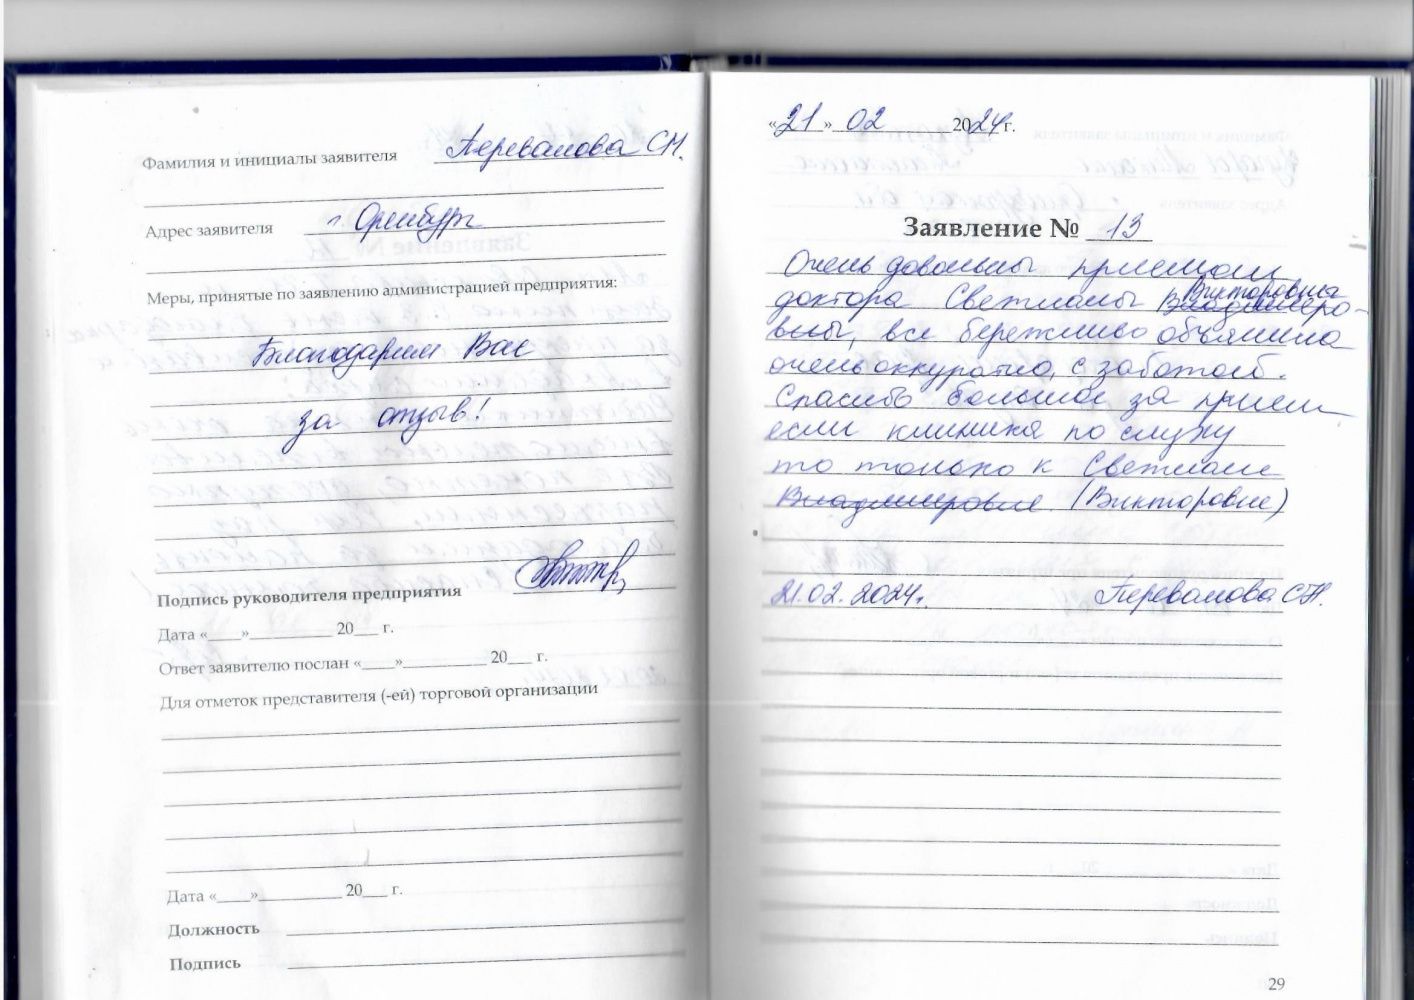 Фамилия и инициалы заявителя Перевалова С.Н.
Адрес заявителя г. Оренбург
Меры, принятые по заявлению администрацией предприятия:
Благодарим Вас
за отзыв!
Подпись руководителя предприятия
Дата «____»__________ 20___ г.
Ответ заявителю послан «____»__________ 20___ г.
Для отметок представителя (-ей) торговой организации
Дата «____»__________ 20___ г.
Должность
Подпись
«21» 02 2024 г.
Заявление № 13
Очень довольны приемом
Викторовна
доктора Светланы Владимиро-
вны, все бережливо объяснила
очень аккуратно, с заботой.
Спасибо большое за прием
если клиника по слуху
то только к Светлане
Владимировне (Викторовне)
21.02.2024г. Перевалова С.Н.
29